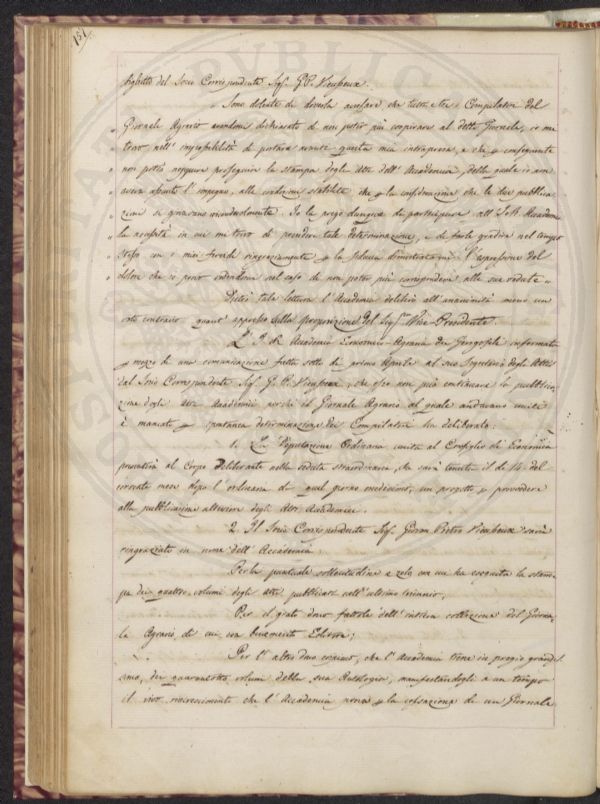 151
biglietto del Socio Corrispondente Sig. G. P. Vieusseux.
" Sono dolente di dovervi accusare che tutti e tre i Compilatori del
" Giornale Agrario avendomi dichiarato di non poter più cooperare al detto Giornale, io mi
" trovo nell' impossibilità di portare avanti questa mia intrapresa, e che p conseguente
" non potrò neppure proseguire la stampa degli Atti dell' Accademia, della quale io mi
" aveva assunto l' impegno, alle condizioni stabilite che p la considerazione che le due pubblica
" zioni si giovavano vicendevolmente. Io la prego dunque di partecipare all' I. e R. Accademia
" la necessità in cui mi trovo di prendere tale determinazione, e di farle gradire nel tempo
" stesso con i miei ringraziamenti p la fiducia dimostratami l' espressione del
" dolore che io provo vedendomi nel caso di non poter più corrispondere alle sue vedute "
Dietro tale lettura l' Accademia deliberò all' unanimità meno un
voto contrario quant' appresso sulla proposizione del Sig.re Vice-Presidente.
L' I. e R. Accademia Economico-Agraria dei Georgofili informata
p mezzo di una comunicazione fatta sotto dì primo Aprile al suo Segretario degli Atti
dal Socio Corrispondente Sig. G. P. Vieusseux, che esso non può continuare la pubblica-
zione degli Atti Accademici perchè il Giornale Agrario al quale andavano uniti
è mancato p spontanea determinazione dei Compilatori ha deliberato:
1. La Deputazione Ordinaria unita al Consiglio di Economia
presenterà al Corpo Deliberante nella seduta straordinaria, che sarà tenuta il dì 14 del
corrente mese dopo l' ordinaria di quel giorno medesimo, un progetto p provvedere
alla pubblicazione ulteriore degli Atti Accademici.
2. Il Socio Corrispondente Sig. Giovan Pietro Vieusseux sarà
ringraziato in nome dell' Accademia:
Per la puntuale sollecitudine e zelo con cui ha eseguita la stam-
pa dei quattro volumi degli Atti pubblicati nell' ultimo triennio;
Per il grato dono fattole dell' intiera collezione del Giorna-
le Agrario, di cui era benemerito Editore;
Per l' altro dono cospicuo, che l' Accademia tiene in pregio grandis-
simo, dei quarantotto volumi della sua Antologia, manifestandogli a un tempo
il vivo rincrescimento che l' Accademia prova p la cessazione di un Giornale